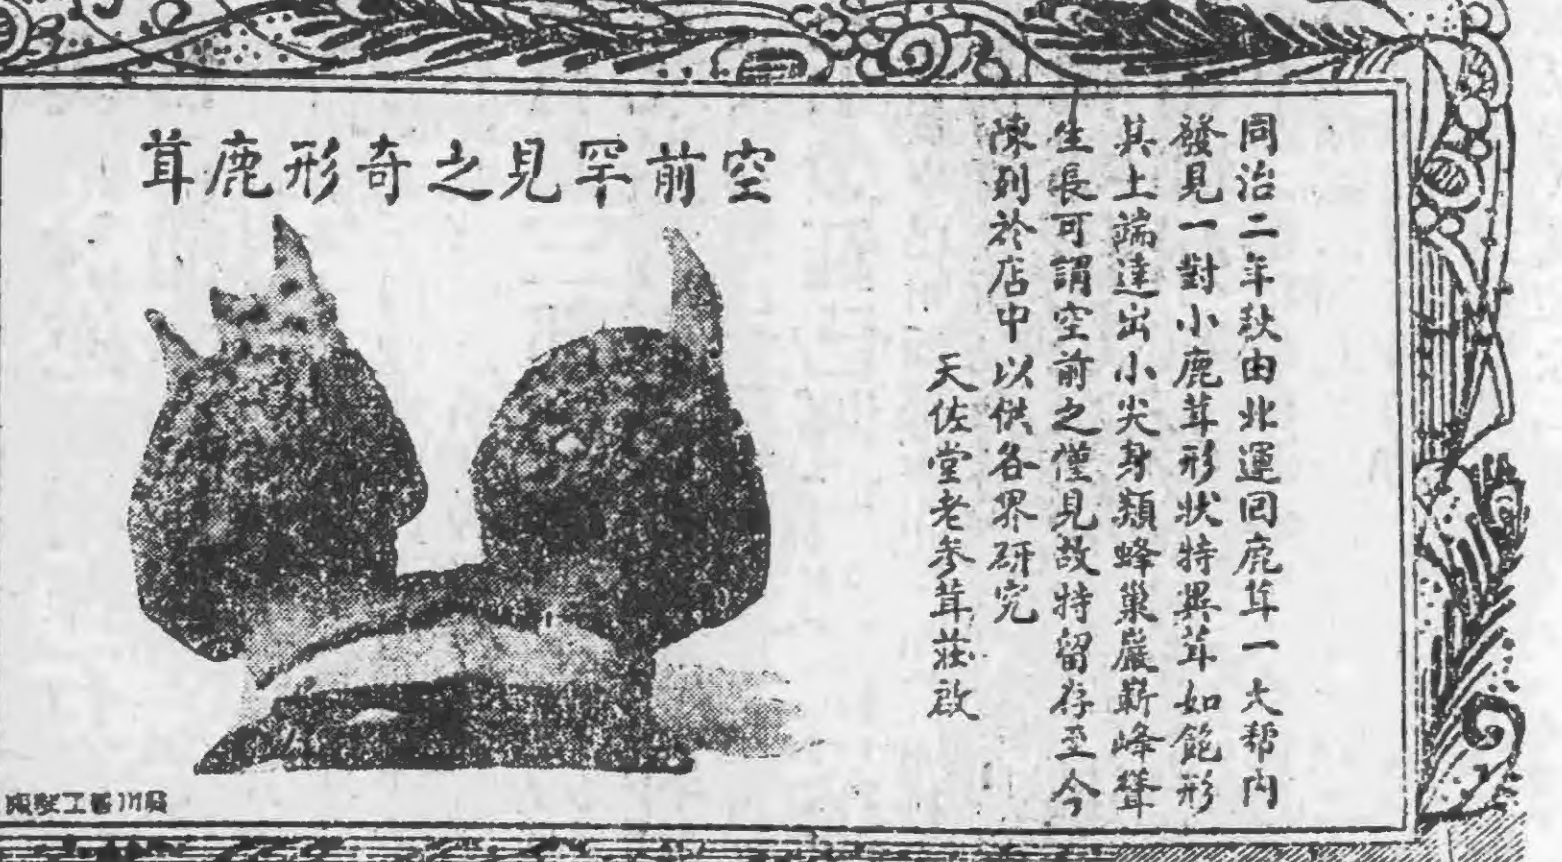 空前罕見之奇形鹿茸
同治二年秋由北運囘鹿茸一大帮內
發見一對小鹿茸形狀特異茸如鉋形
其上端達出小尖身類蜂巢巖嶄峰聳
生長可謂空前之僅見故特留存至今
陳列於店中以供各界研究
天佐堂老參茸莊啟